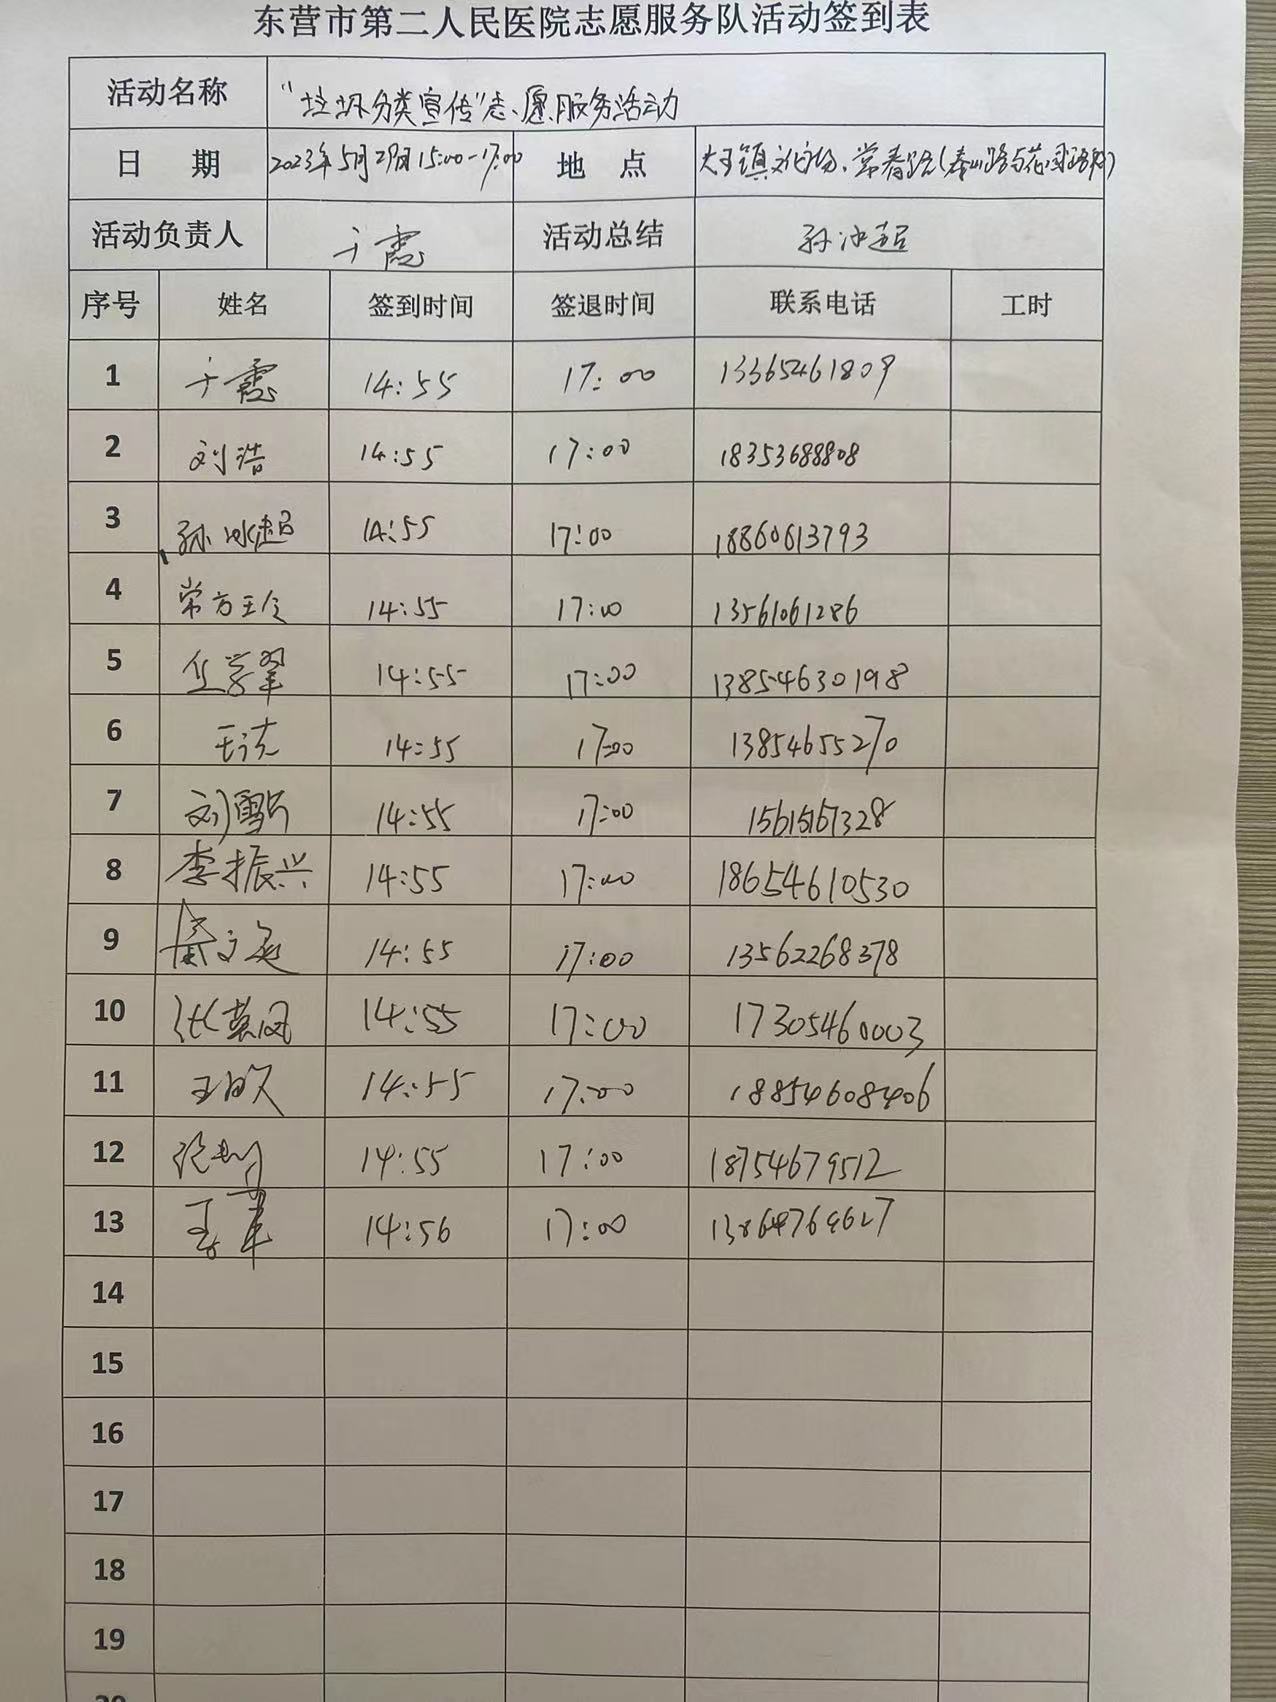 东营市第二人民医院志愿服务队活动签到表
活动名称 "垃圾分类宣传"志愿服务活动
日 期 2023年5月29日15:00-17:00 地 点 大王镇文化广场、常春路(泰山路与花园路中间)
活动负责人 于霞 活动总结 孙冰超
序号 姓名 签到时间 签退时间 联系电话 工时
1 于霞 14:55 17:00 13365461809
2 刘浩 14:55 17:00 18353688808
3 孙冰超 14:55 17:00 18860613793
4 常方玲 14:55 17:00 13561061286
5 14:55 17:00 13854630198
6 14:55 17:00 13854655270
7 14:55 17:00 15615167328
8 李振兴 14:55 17:00 18654610530
9 14:55 17:00 13562268378
10 张英凤 14:55 17:00 17305460003
11 14:55 17:00 18854608406
12 14:55 17:00 18754679512
13 14:56 17:00
14
15
16
17
18
19
20